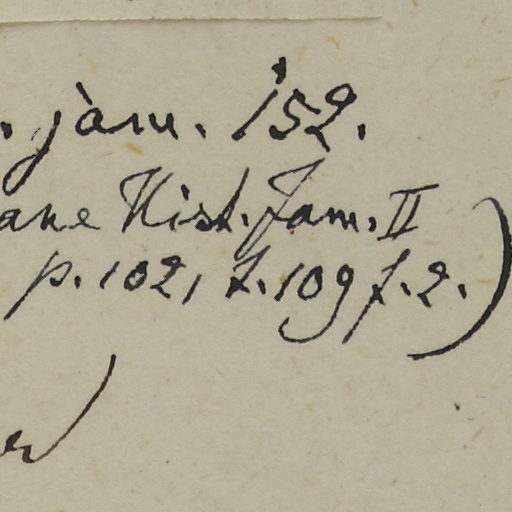 . jam. 152.
ane Hist. Jam. II
p. 102, t. 109 f. 2.)